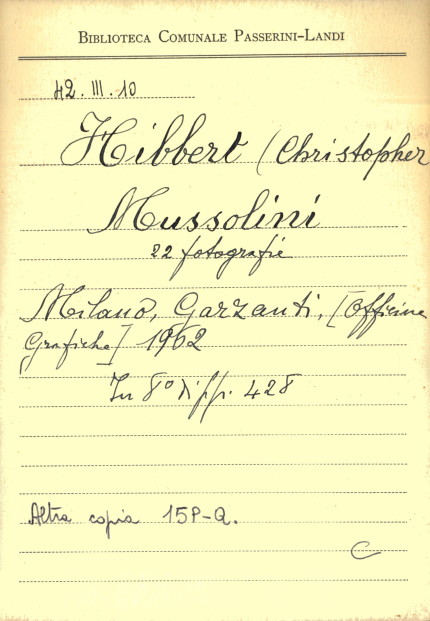 BIBLIOTECA COMUNALE PASSERINI-LANDI
42. III. 10
Hibbert (Christopher
Mussolini
22 fotografie
Milano, Garzanti, [Officine
Grafiche] 1962
In 8° di pp. 428
Altra copia 15P-Q.
C